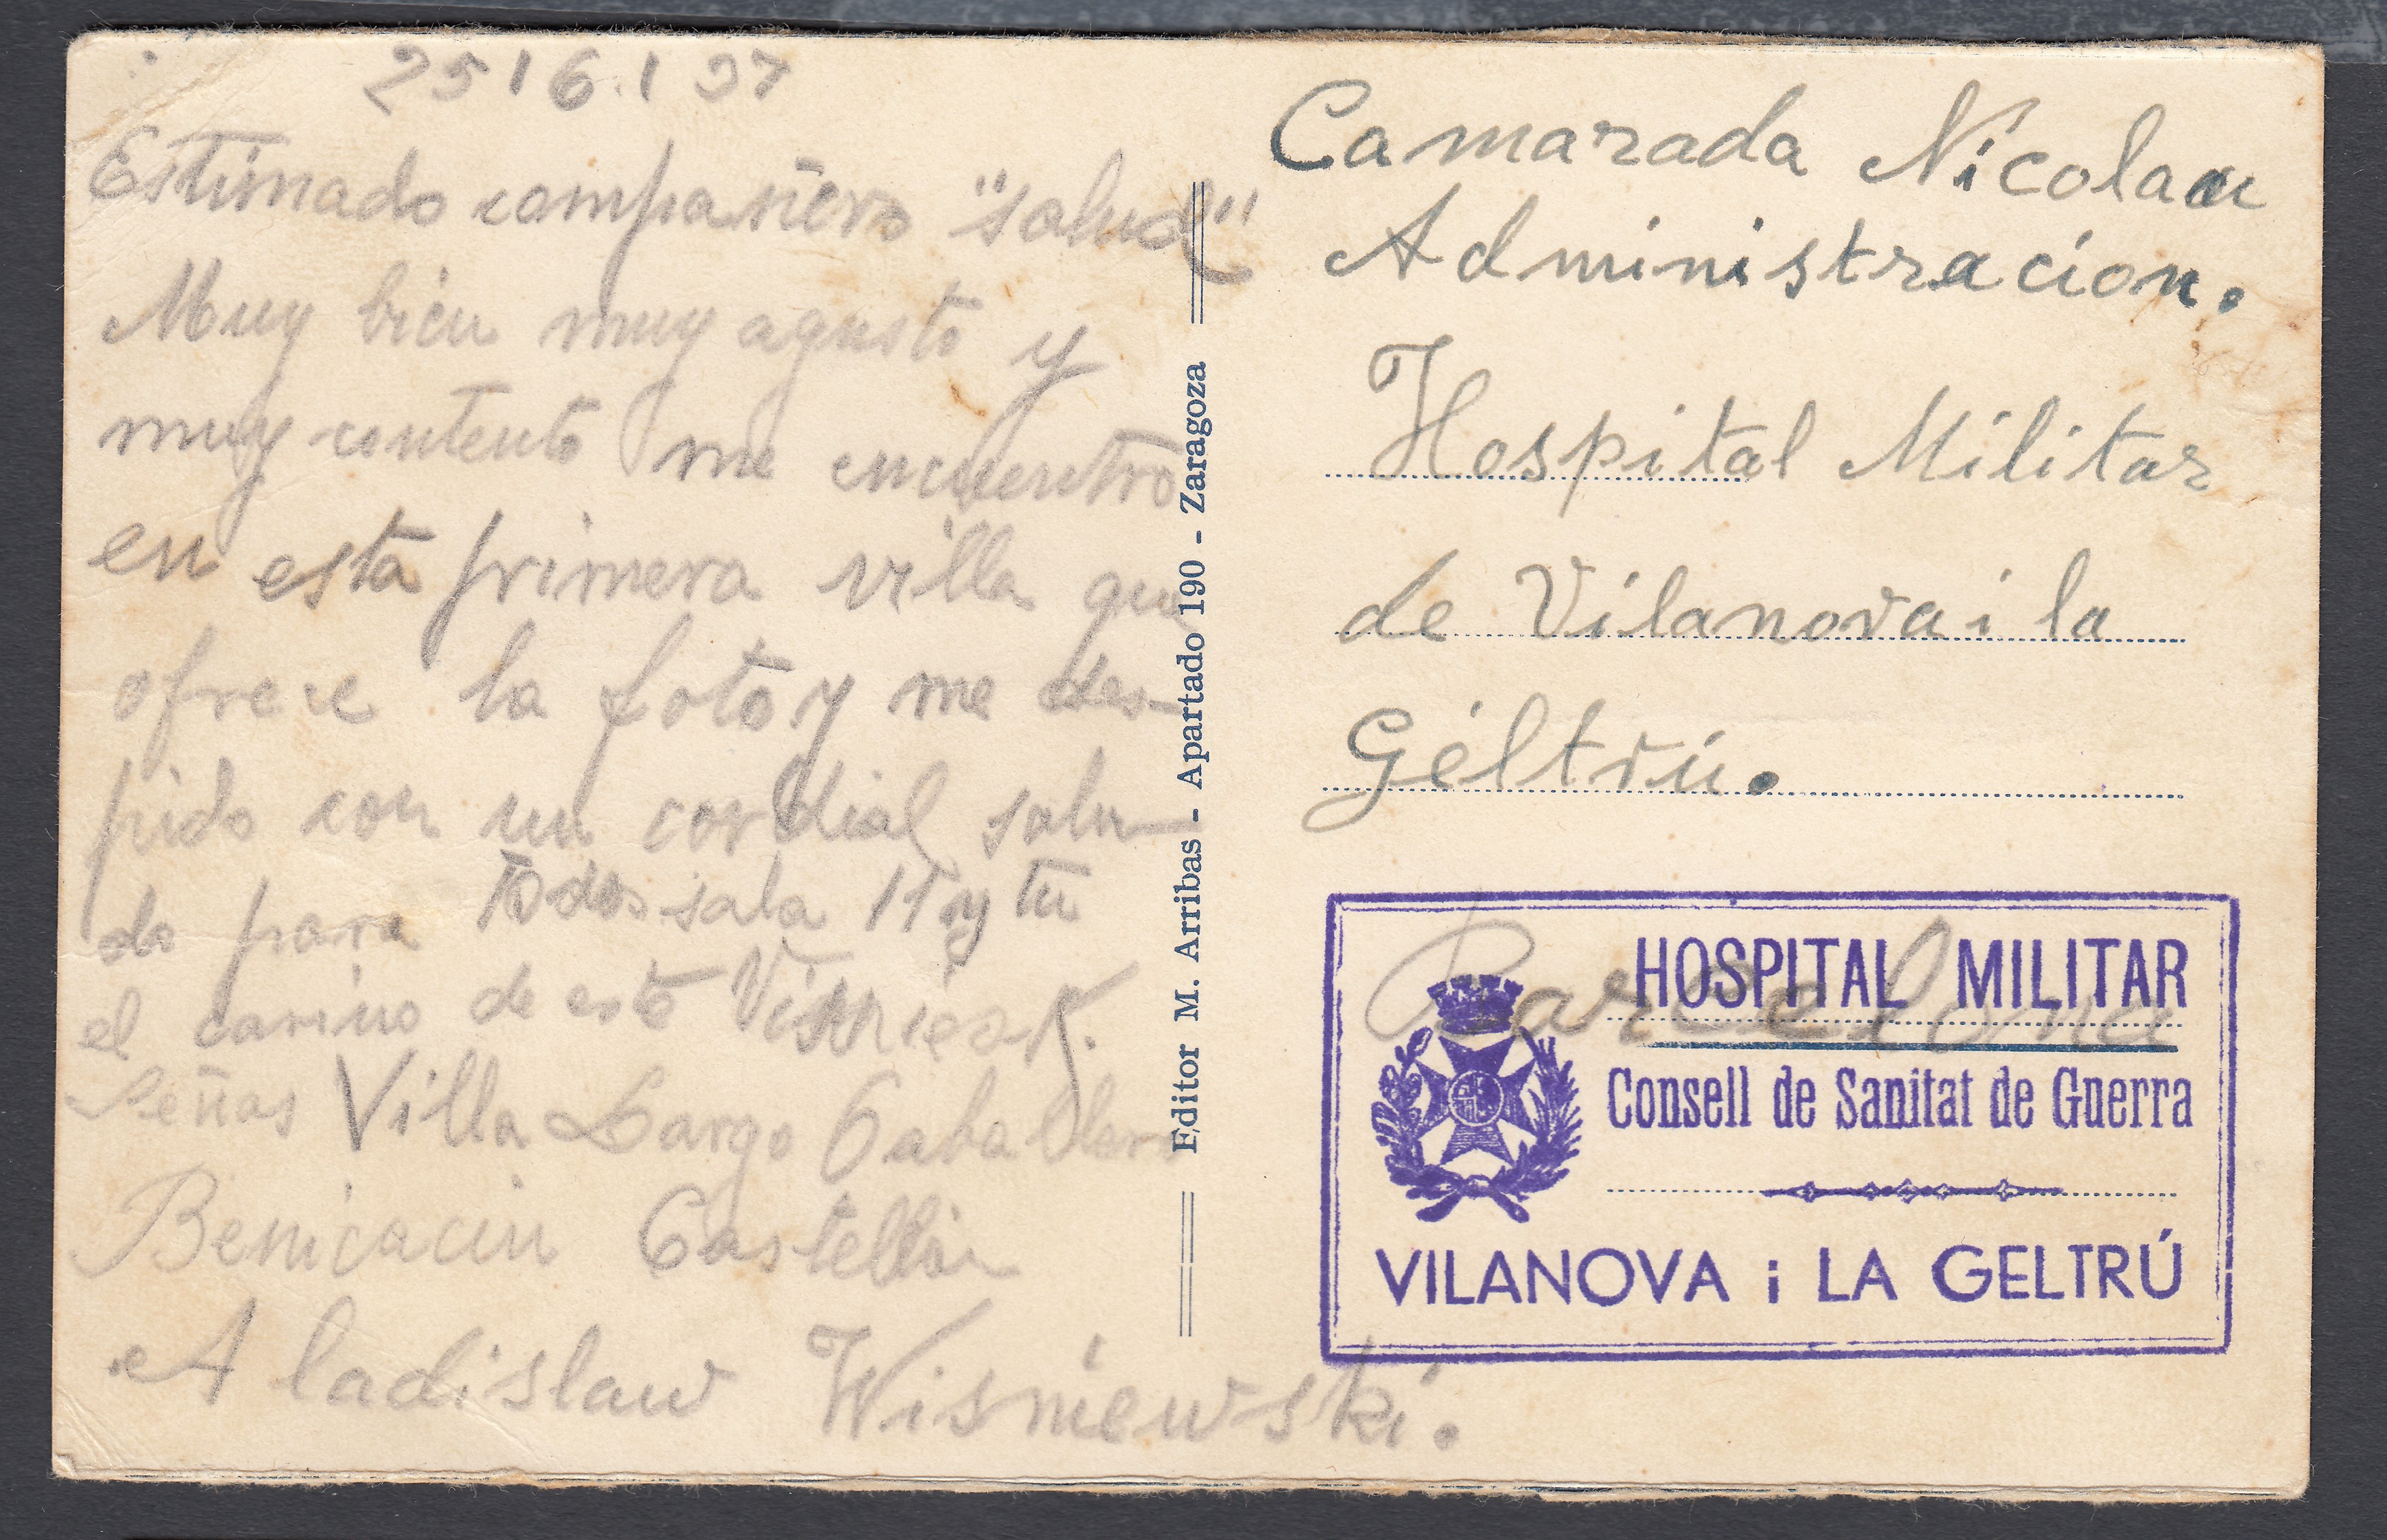 25 | 6. | 37
Estimado compañero "salud"
Muy bien muy agusto y
muy contento me encuentro
en esta primera villa que
ofrece la foto y me des-
pido con un cordial salu-
do para todos sala 11 y tu
el carino de este
Señas Villa Largo Caballero
Benicacin Castellon
A ladislaw Wisniewski.
Editor M. Arribas - Apartado 190 - Zaragoza
Camarada Nicolau
Administracion.
Hospital Militar
de Vilanova i la
Géltrú.
Barcelona
HOSPITAL MILITAR
Consell de Sanitat de Guerra
VILANOVA i LA GELTRÚ